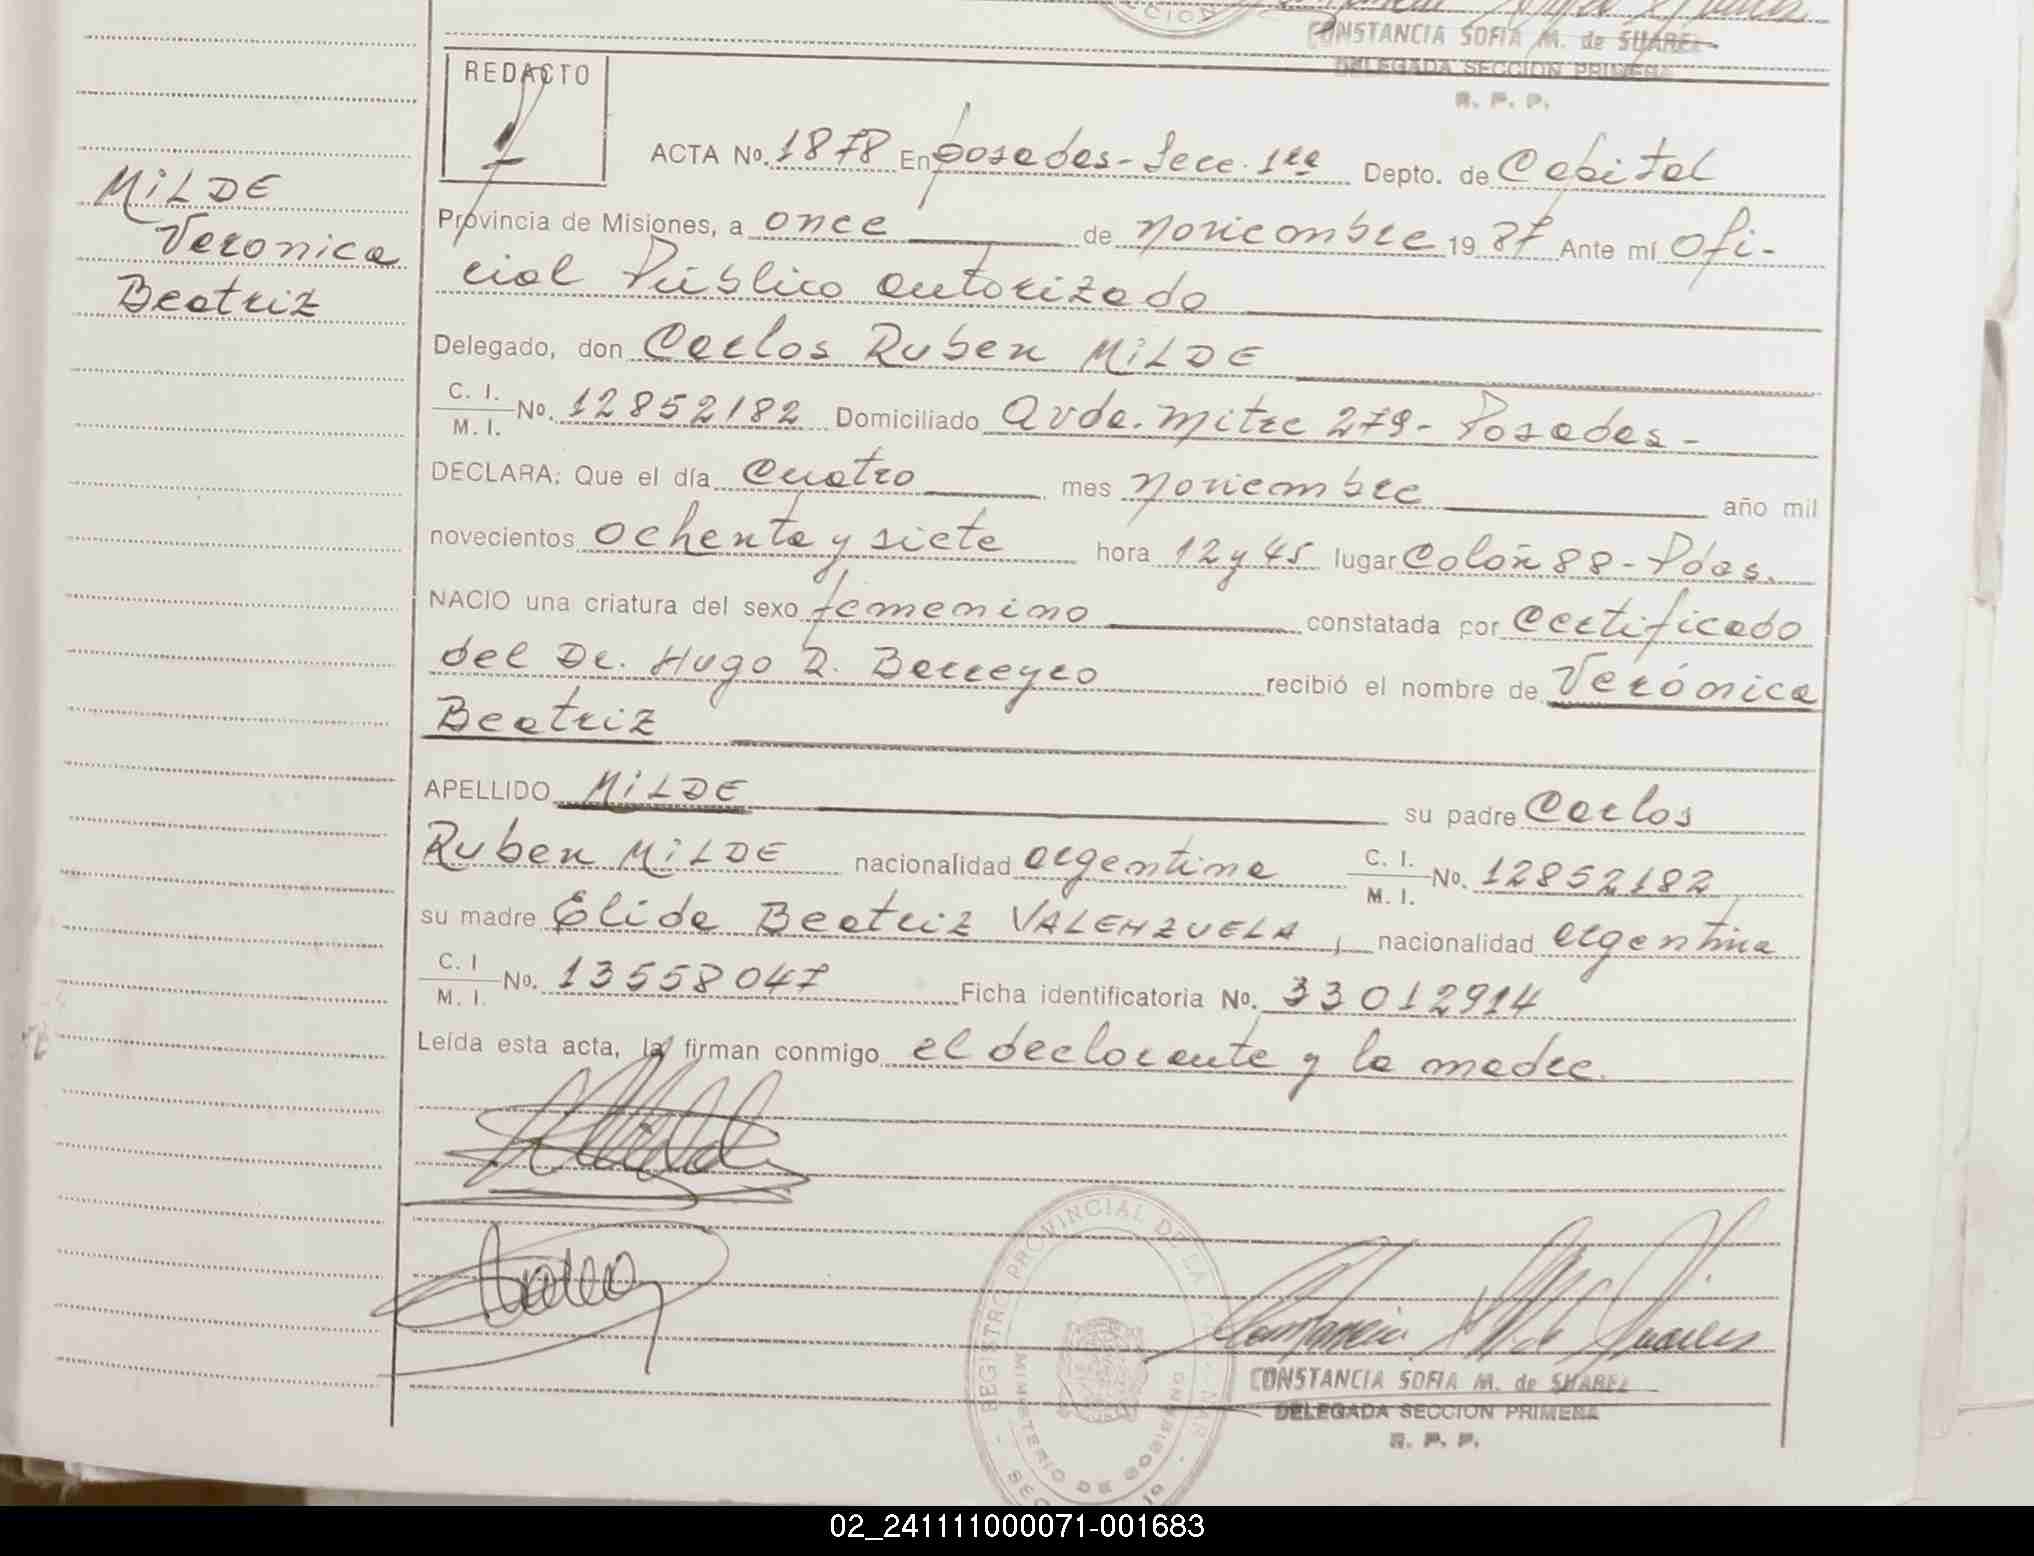 CONSTANCIA SOFIA M. de SUAREZ
DELEGADA SECCION PRIMERA
R. P. P.
REDACTO
MILDE
Veronica
Beatriz
ACTA No. 1878 En Posadas - Secc. 1ra Depto. de Capital
Provincia de Misiones, a once de noviembre 19 87 Ante mí Ofi-
cial Público autorizado
Delegado, don Carlos Ruben MILDE
C. I. / M. I. No. 12852182 Domiciliado Avda. Mitre 279 - Posadas -
DECLARA: Que el día cuatro mes noviembre año mil
novecientos ochenta y siete hora 12 y 45 lugar Colón 88 - Pdas.
NACIO una criatura del sexo femenino constatada por Certificado
del Dr. Hugo R. Barreyro recibió el nombre de Verónica
Beatriz
APELLIDO MILDE su padre Carlos
Ruben MILDE nacionalidad argentina C. I. / M. I. No. 12852182
su madre Elida Beatriz VALENZUELA, nacionalidad argentina
C. I / M. I. No. 13558047 Ficha identificatoria No. 33012914
Leída esta acta, la firman conmigo el declarante y la madre.
REGISTRO PROVINCIAL DE LA
MINISTERIO DE GOBIERNO
CONSTANCIA SOFIA M. de SUAREZ
DELEGADA SECCION PRIMERA
R. P. P.
02_241111000071-001683